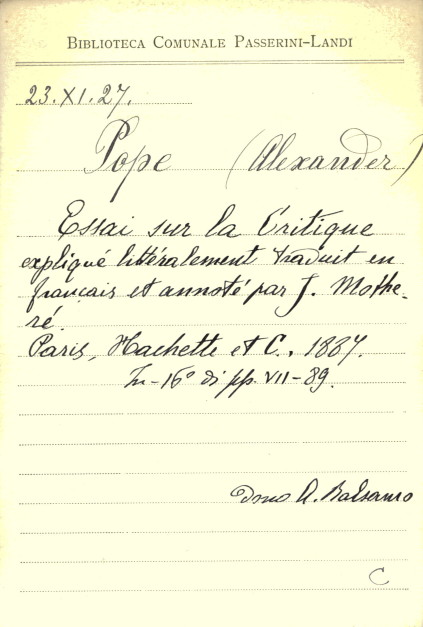 BIBLIOTECA COMUNALE PASSERINI-LANDI
23.XI.27.
Pope (Alexander)
Essai sur la Critique
expliqué littéralement traduit en
français et annoté par J. Mothe-
ré.
Paris, Hachette et C., 1887.
In-16° di pp. VII-89.
Dono A. Balsamo
C